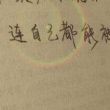 连自己都能被